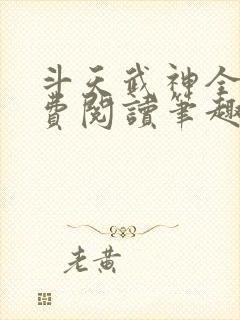 斗天武神全
費閱讀筆趣
老黄